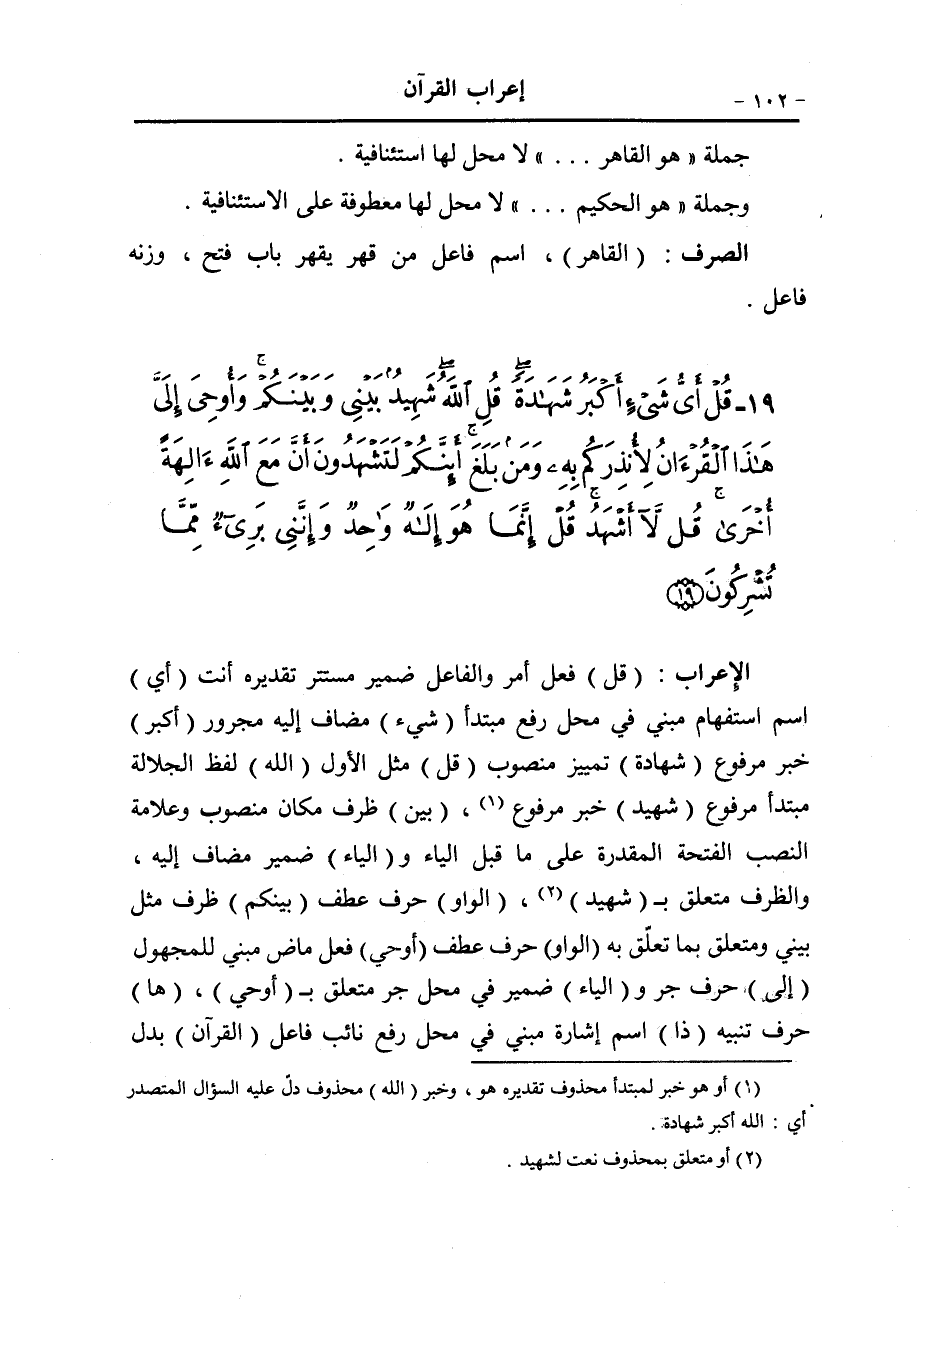 - ١٠٢ - إعراب القرآن
جملة « هو القاهر . . . » لا محل لها استئنافية .
وجملة « هو الحكيم . . . » لا محل لها معطوفة على الاستئنافية .
الصرف : ( القاهر ) ، اسم فاعل من قهر يقهر باب فتح ، وزنه
فاعل .
١٩- قُلْ أَىُّ شَىْءٍ أَكْبَرُ شَهَٰدَةً ۖ قُلِ ٱللَّهُ ۖ شَهِيدٌۢ بَيْنِى وَبَيْنَكُمْ ۚ وَأُوحِىَ إِلَىَّ
هَٰذَا ٱلْقُرْءَانُ لِأُنذِرَكُم بِهِۦ وَمَنۢ بَلَغَ ۚ أَئِنَّكُمْ لَتَشْهَدُونَ أَنَّ مَعَ ٱللَّهِ ءَالِهَةً
أُخْرَىٰ ۚ قُل لَّآ أَشْهَدُ ۚ قُلْ إِنَّمَا هُوَ إِلَٰهٌ وَٰحِدٌ وَإِنَّنِى بَرِىٓءٌ مِّمَّا
تُشْرِكُونَ ﴿١٩﴾
الإعراب : ( قل ) فعل أمر والفاعل ضمير مستتر تقديره أنت ( أي )
اسم استفهام مبني في محل رفع مبتدأ ( شيء ) مضاف إليه مجرور ( أكبر )
خبر مرفوع ( شهادة ) تمييز منصوب ( قل ) مثل الأول ( الله ) لفظ الجلالة
مبتدأ مرفوع ( شهيد ) خبر مرفوع (١) ، ( بين ) ظرف مكان منصوب وعلامة
النصب الفتحة المقدرة على ما قبل الياء و( الياء ) ضمير مضاف إليه ،
والظرف متعلق بـ ( شهيد ) (٢) ، ( الواو ) حرف عطف ( بينكم ) ظرف مثل
بيني ومتعلق بما تعلّق به (الواو) حرف عطف (أوحي) فعل ماض مبني للمجهول
( إلى ) حرف جر و( الياء ) ضمير في محل جر متعلق بـ ( أوحي ) ، ( ها )
حرف تنبيه ( ذا ) اسم إشارة مبني في محل رفع نائب فاعل ( القرآن ) بدل
(١) أو هو خبر لمبتدأ محذوف تقديره هو ، وخبر ( الله ) محذوف دلّ عليه السؤال المتصدر
أي : الله أكبر شهادة .
(٢) أو متعلق بمحذوف نعت لشهيد .